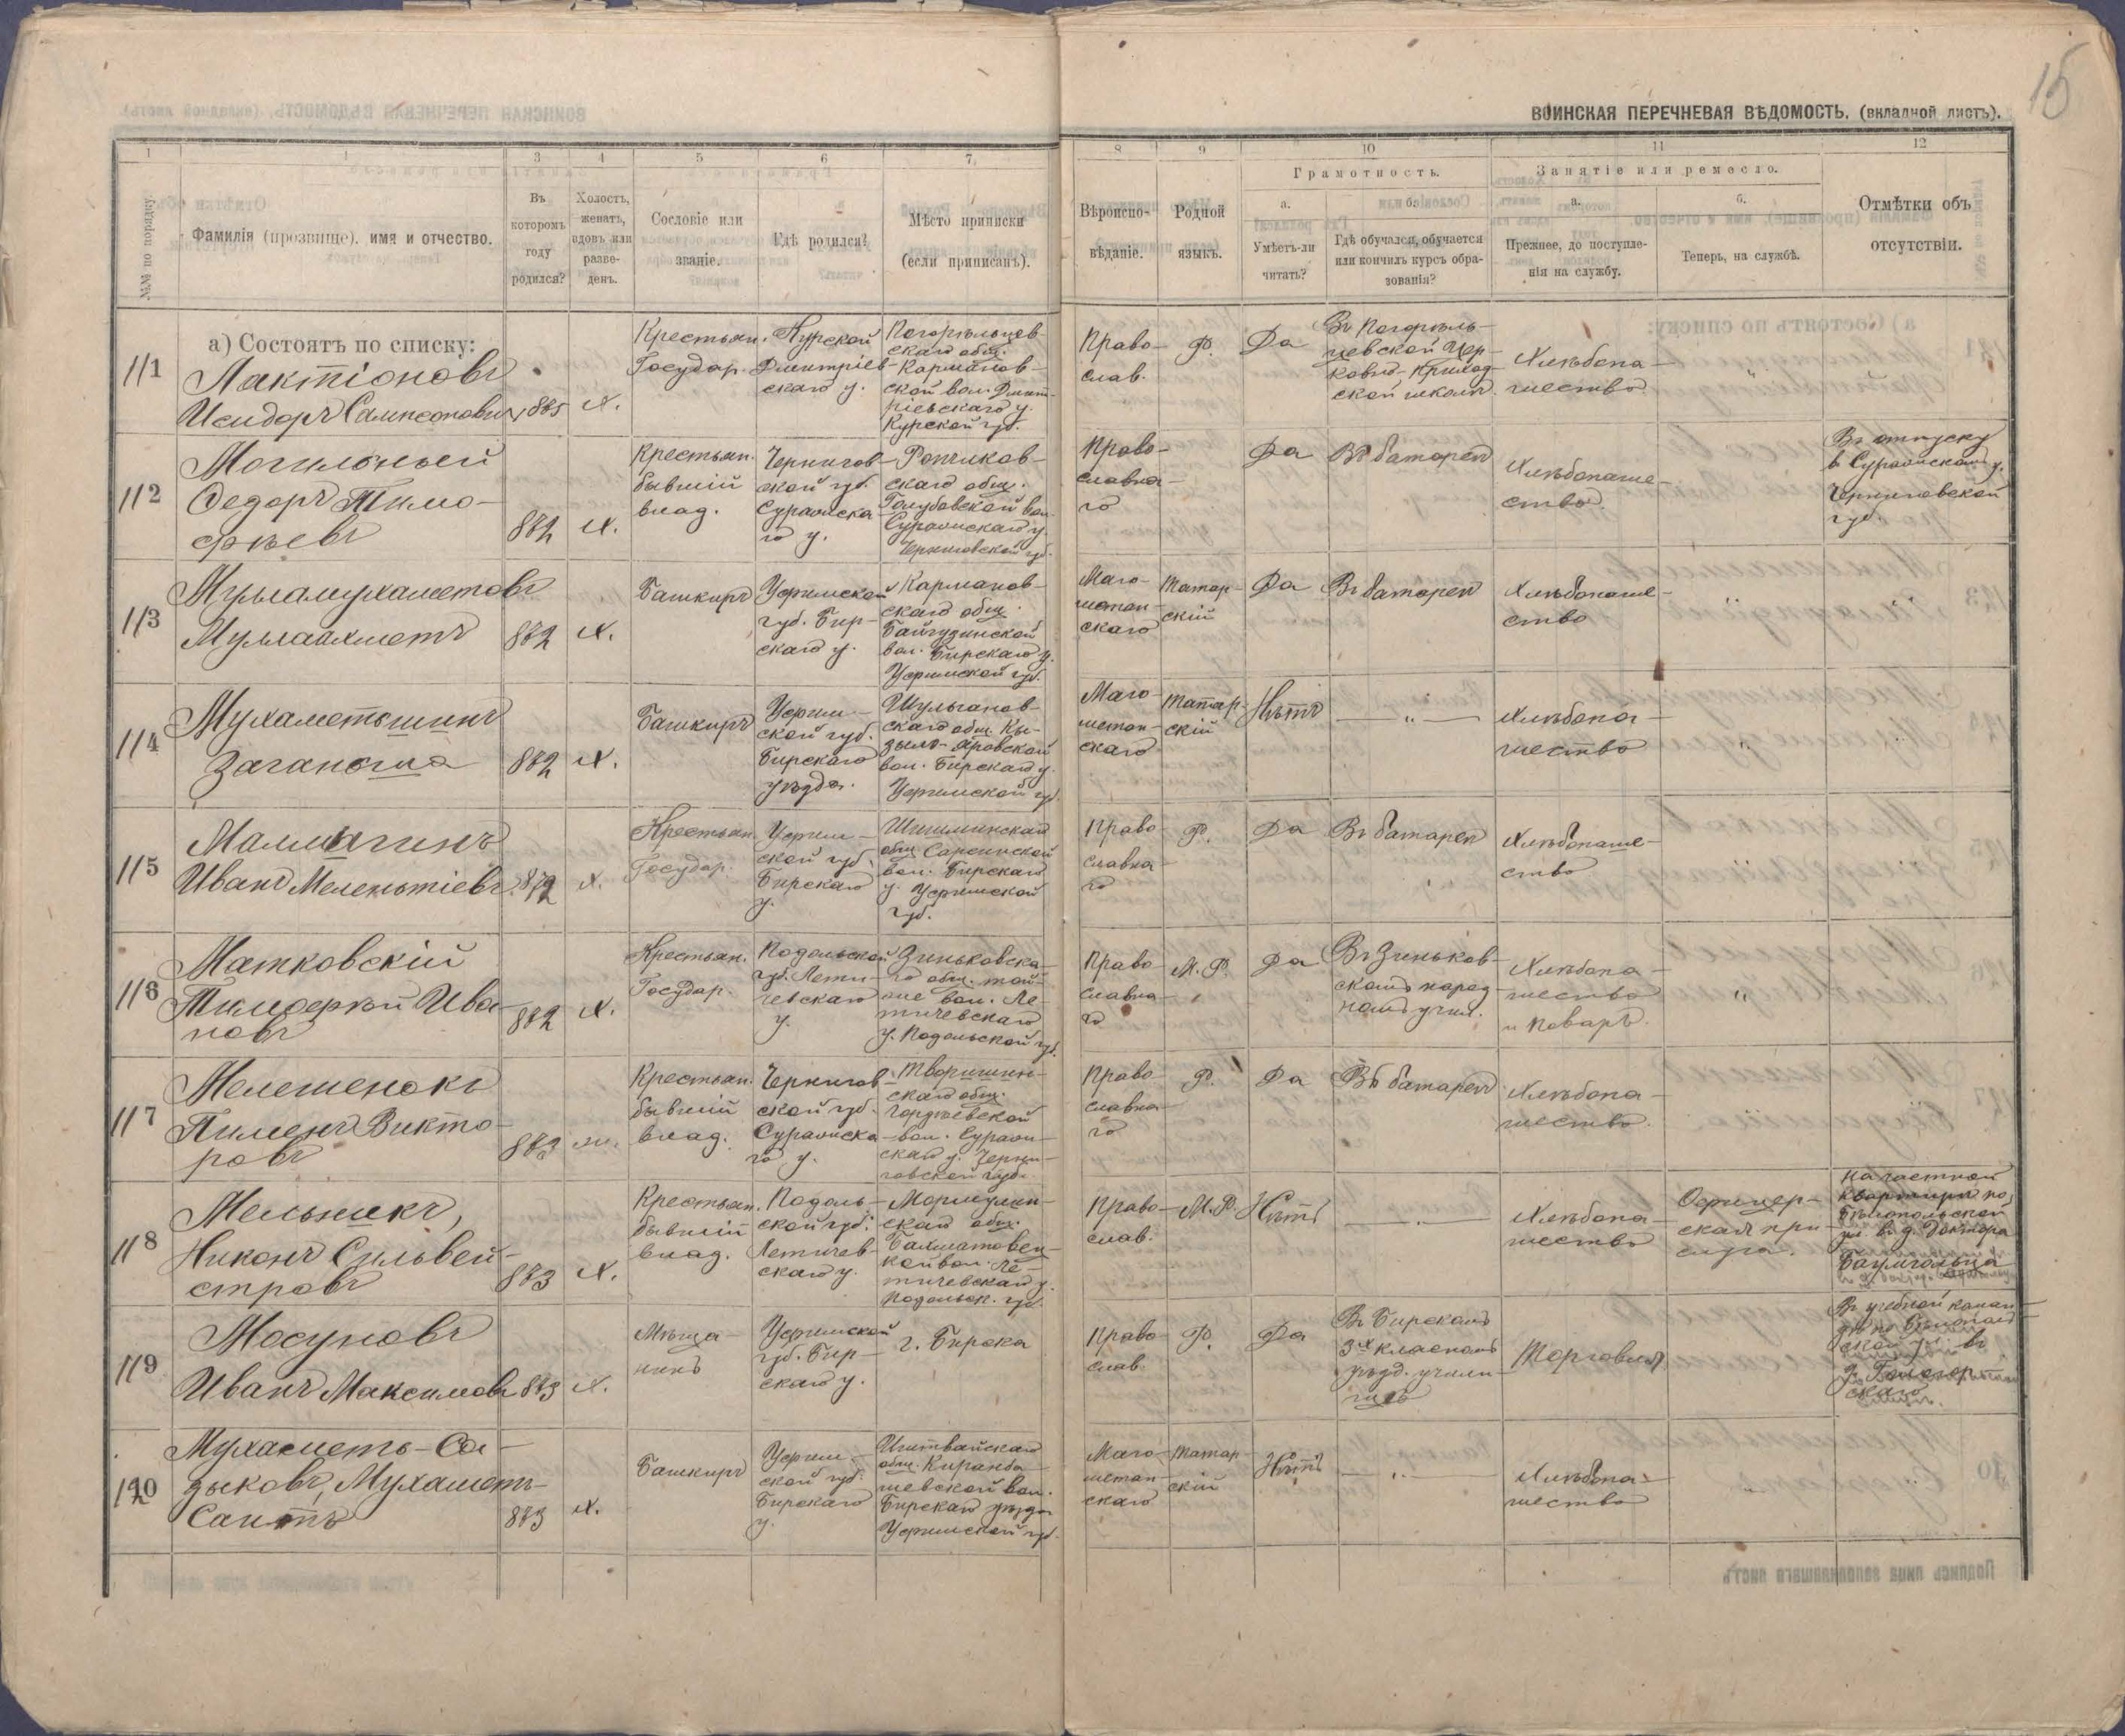 15
ВОИНСКАЯ ПЕРЕЧНЕВАЯ ВѢДОМОСТЬ. (вкладной листъ).
1
3
4
5
6
7
8
9
10
11
12
№№ по порядку.
Фамилія (прозвище). имя и отчество.
Въ
которомъ
году
родился?
Холостъ,
женатъ,
вдовъ или
разве-
денъ.
Сословіе или
званіе.
Гдѣ родился?
Мѣсто приписки
(если приписанъ).
Вѣроиспо-
вѣданіе.
Родной
языкъ.
Грамотность.
а.
Умѣетъ-ли
читать?
б.
Гдѣ обучался, обучается
или кончилъ курсъ обра-
зованія?
Занятіе или ремесло.
а.
Прежнее, до поступле-
нія на службу.
б.
Теперь, на службѣ.
Отмѣтки объ
отсутствіи.
а) Состоятъ по списку:
111
Лактіоновъ
Исидоръ Сампсоновичъ
х.
Крестьян.
Государ.
Курской
Дмитріев-
скаго у.
Погорѣльцев-
скаго общ.
Карманов-
ской вол. Дмит-
ріевскаго у.
Курской губ.
Право-
слав.
Р.
Да
Въ Погорѣль-
цевской Цер-
ковно-приход-
ской школѣ.
Хлѣбопа-
шество
112
Могильный
Федоръ Тимо-
фѣевъ
х.
Крестьян.
бывшій
влад.
Чернигов-
ской губ.
Суражска-
го у.
скаго общ.
Голубовской вол.
Суражскаго у.
Черниговской губ.
Право-
славна-
го
Да
Въ батареѣ
Хлѣбопаше-
ство
Въ отпуску
в Суражскомъ у.
Черниговской
губ.
113
Муламухаметовъ
Муллаахметъ
872
х.
Башкиръ
Уфимской
губ. Бир-
скаго у.
Карманов-
скаго общ.
Байгузинской
вол. Бирскаго у.
Уфимской губ.
Маго-
метан-
скаго
Татар-
скій
Да
Въ батареѣ
Хлѣбопаше-
ство
114
Мухаметьшинъ
Заганьша
872
х.
Башкиръ
Уфим-
ской губ.
Бирскаго
уѣзда.
Шульганов-
скаго общ. Кы-
зылъ-Яровской
вол. Бирскаго у.
Уфимской губ.
Маго-
метан-
скаго
Татар-
скій
Нѣтъ
— " —
Хлѣбопа-
шество
115
Малмыгинъ
Иванъ Меленьтіевъ
872
х.
Крестьян.
Государ.
Уфим-
ской губ.
Бирскаго
у.
общ. Сарсинской
вол. Бирскаго
у. Уфимской
губ.
Право-
славна-
го
Р.
Да
Въ батареѣ
Хлѣбопаше-
ство
116
Матковскій
Тимоферѣй Ива-
новъ
872
х.
Крестьян.
Государ.
Подольской
губ. Лети-
чевскаго
у.
Зиньковска-
го общ. той-
же вол. Ле-
тичевскаго
у. Подольской губ.
Право-
славна-
го
М. Р.
Да
Въ Зиньков-
скомъ народ-
номъ учил.
Хлѣбопа-
шество
и поваръ.
117
Мелешенокъ
Пименъ Викто-
ровъ
Крестьян.
бывшій
влад.
Чернигов-
ской губ.
Суражска-
го у.
Творишин-
скаго общ.
Гордѣевской
вол. Сураж-
скаго у. Черни-
говской губ.
Право-
славна-
го
Р.
Да
Въ батареѣ
Хлѣбопа-
шество
118
Мельникъ,
Никонъ Сильвей-
стровъ
873
х.
Крестьян.
бывшій
влад.
Подоль-
ской губ.
Летичев-
скаго у.
скаго общ.
Бахматовец-
кой вол. Ле-
тичевскаго у.
Подольск. губ.
Право-
слав.
М. Р.
Нѣтъ
— " —
Хлѣбопа-
шество
Офицер-
ская при-
слуга.
На частной
квартирѣ по
Бѣлопольской
ул. в д. Доктора
Баумгольца
119
Мосуновъ
Иванъ Максимовъ
873
х.
Мѣща-
нинъ
Уфимской
губ. Бир-
скаго у.
г. Бирска
Право-
слав.
Р.
Да
Въ Бирскомъ
3х класномъ
уѣзд. учили-
щѣ
Торговля
Въ учебной коман-
дѣ по Бѣлополь-
ской ул. въ
скаго
120
Мухаметъ-Са-
дыковъ, Мухаметъ-
Саитъ
873
х.
Башкиръ
Уфим-
ской губ.
Бирскаго
у.
общ. Киранба-
шевской вол.
Бирскаго уѣзда
Уфимской губ.
Маго-
метан-
скаго
Татар-
скій
Нѣтъ
— " —
Хлѣбопа-
шество